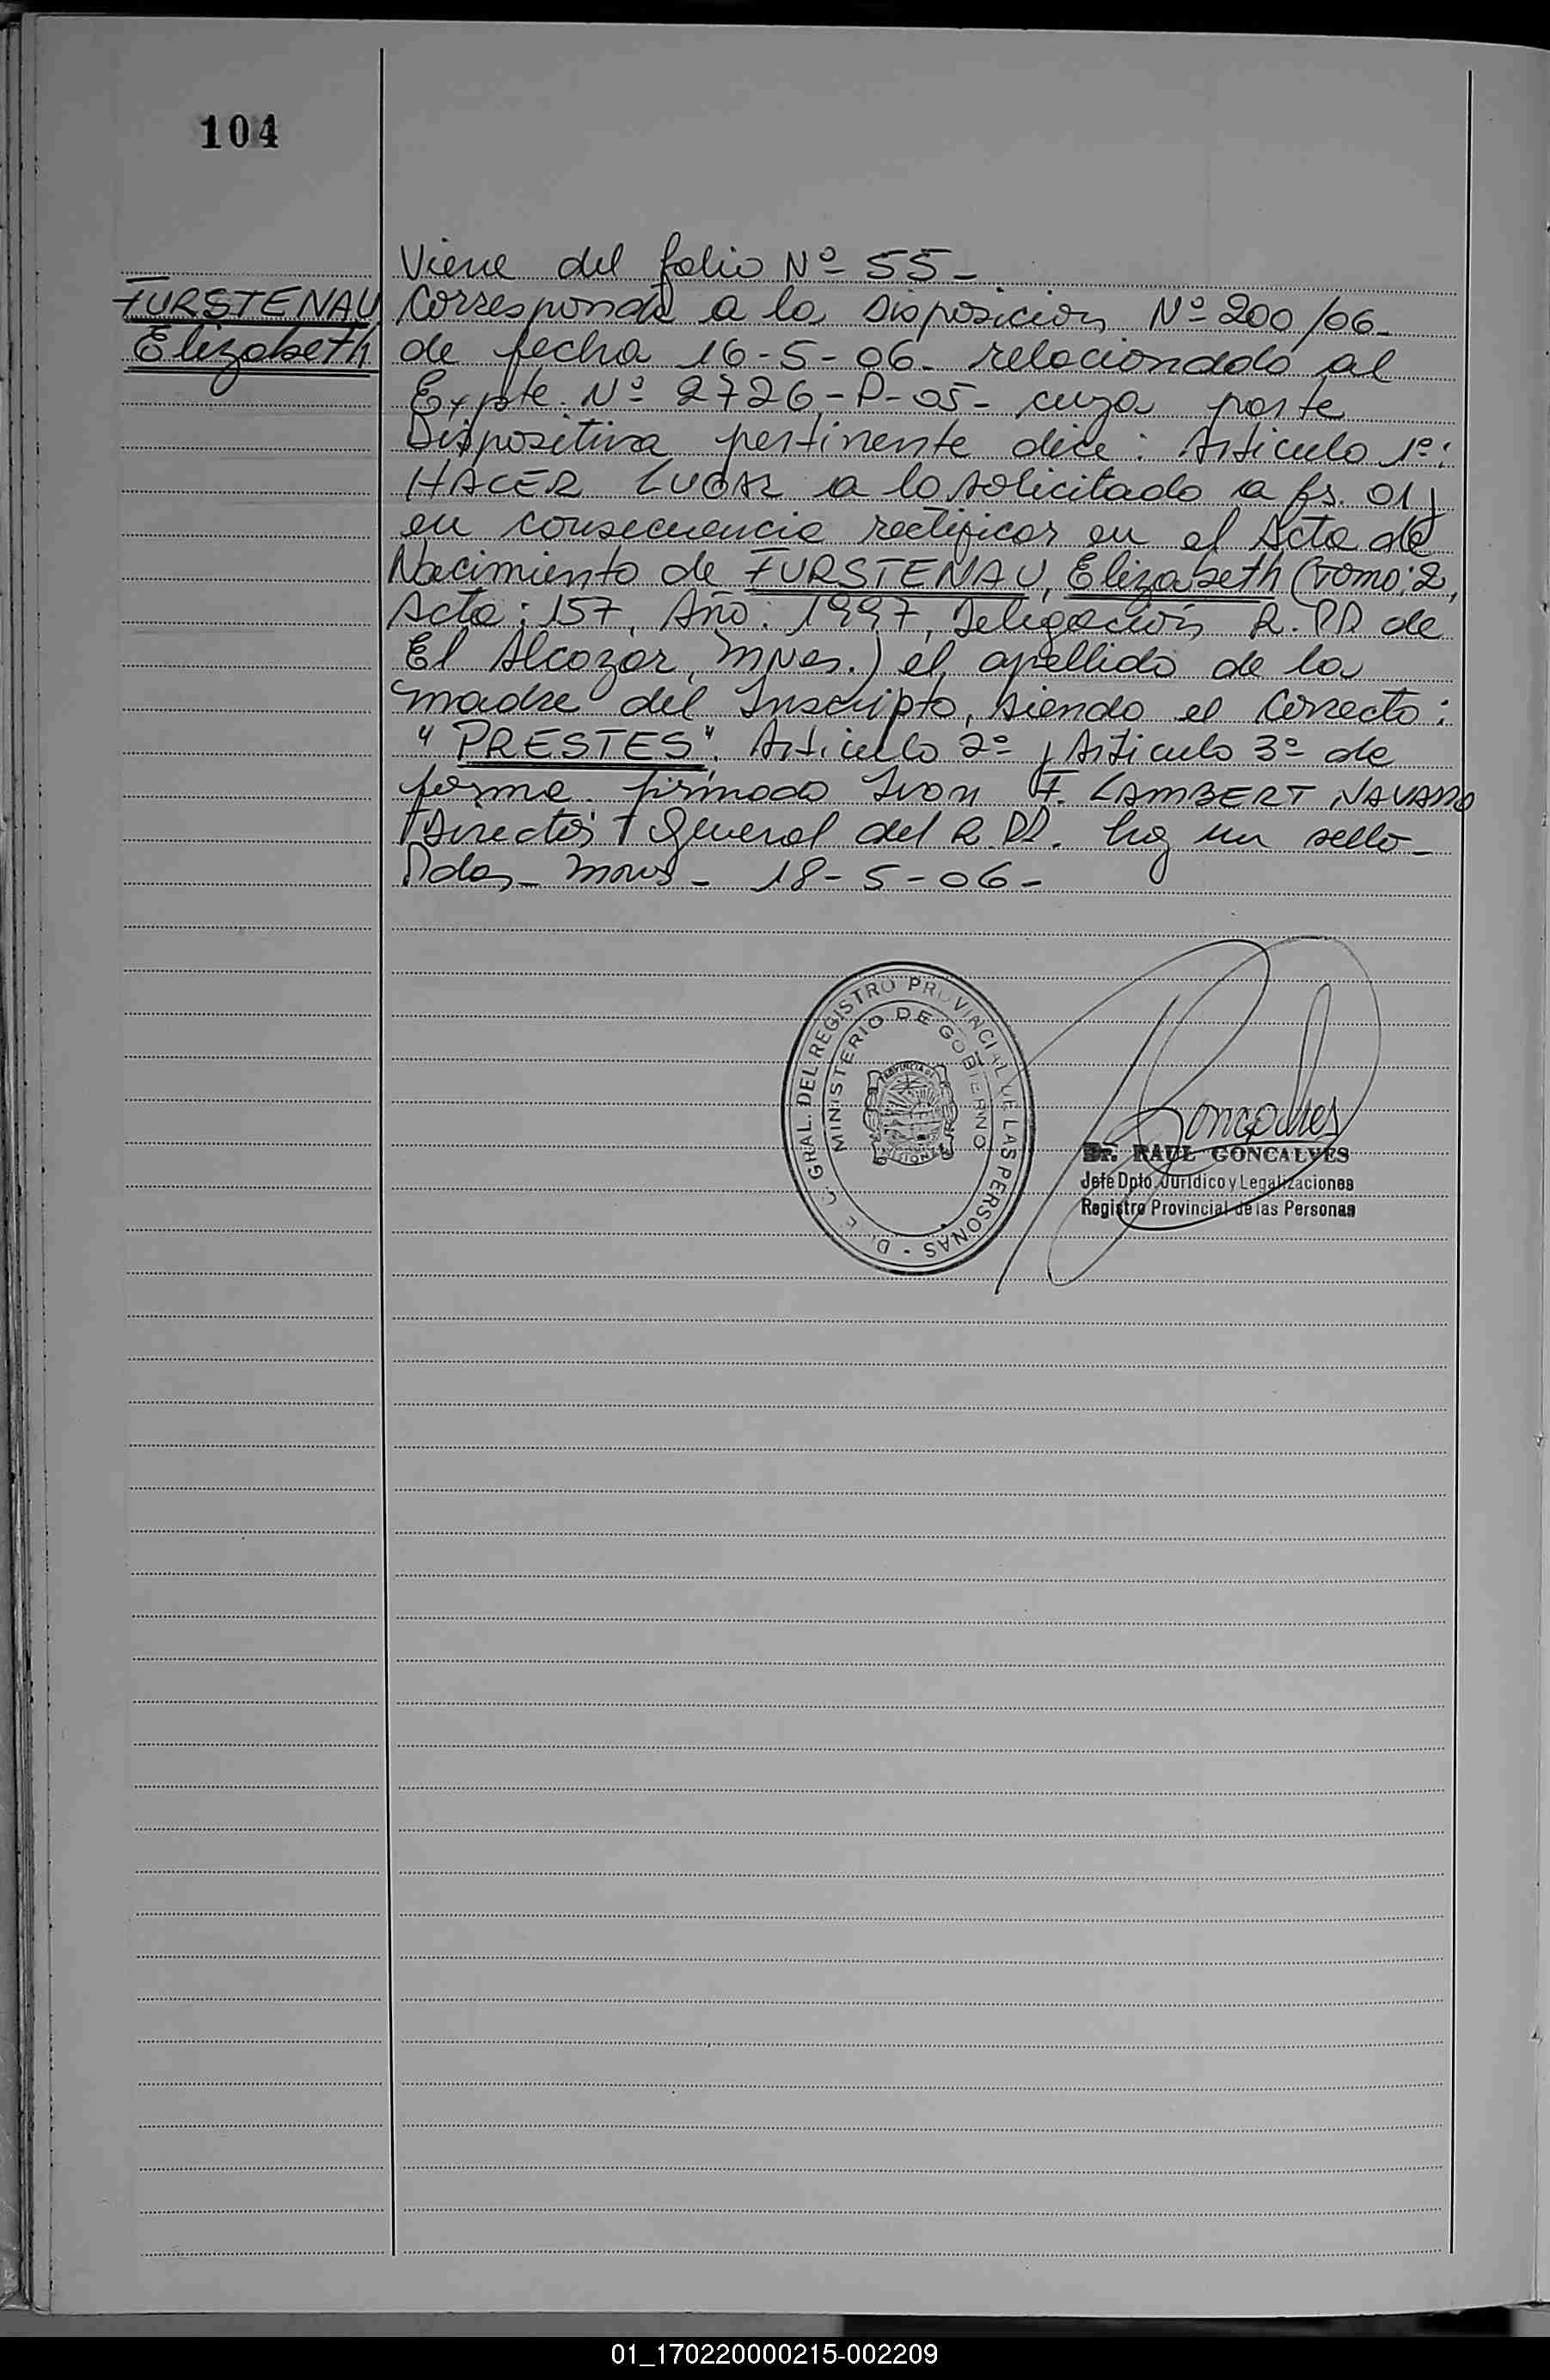 104
Viene del folio Nº 55-
FURSTENAU
Elizabeth
Corresponde a la Disposicion Nº 200/06-
de fecha 16-5-06- relacionado al
Expte. Nº 2726-P-05- cuya parte
Dispositiva pertinente dice: Articulo 1º:
HACER LUGAR a lo solicitado a fs. 01 y
en consecuencia rectificar en el Acta de
Nacimiento de FURSTENAU, Elizabeth (Tomo: 2,
Acta: 157, Año: 1997, Delegación R.PP. de
El Alcazar, Mnes.) el apellido de la
madre del Inscripto, siendo el Correcto:
"PRESTES". Articulo 2º y Articulo 3º de
forma. firmado Ivon F. LAMBERT NAVARRO
Director General del R.PP. hay un sello-
Pdas- Mnes- 18-5-06-
D. E. C. GRAL. DEL REGISTRO PROVINCIAL DE LAS PERSONAS -
MINISTERIO DE GOBIERNO
PROVINCIA DE
MISIONES
Goncalves
Dr. RAUL GONCALVES
Jefe Dpto. Jurídico y Legalizaciones
Registro Provincial de las Personas
01_170220000215-002209